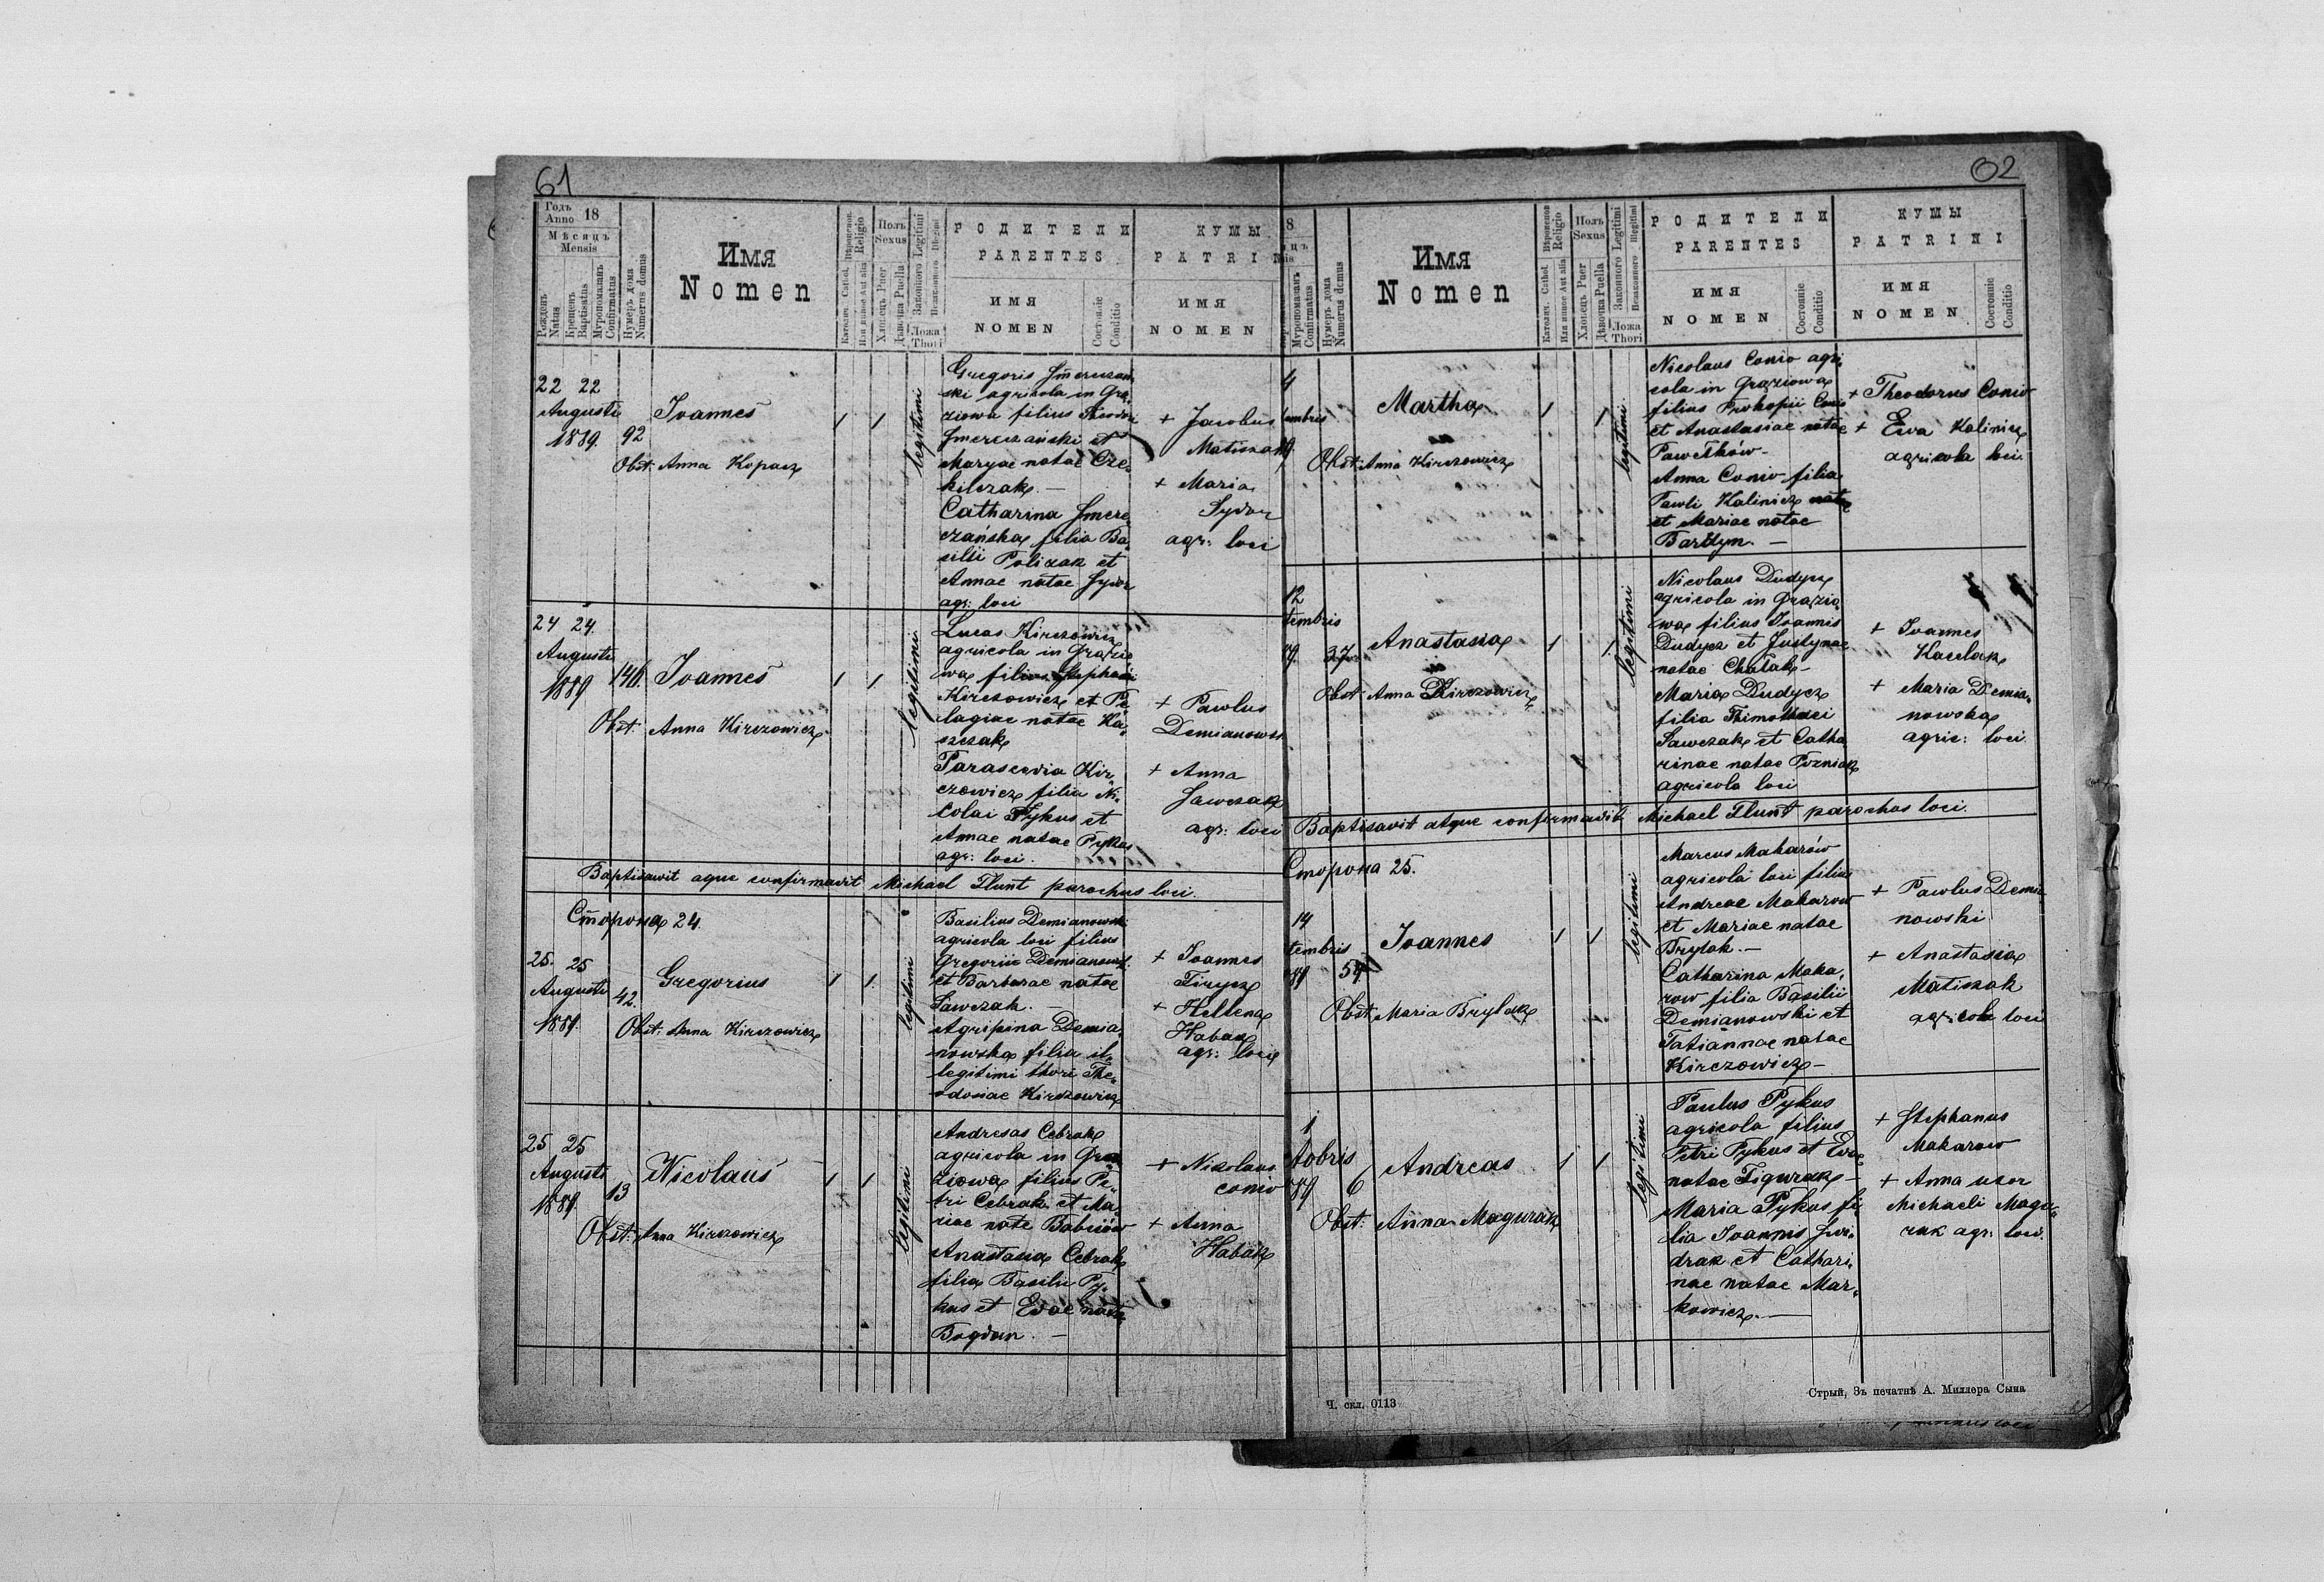 61
Годъ
Anno 18
Мѣсяцъ
Mensis
Рожденъ
Natus
Крещенъ
Baptisatus
Муропомазанъ
Confirmatus
Нумеръ дома
Numerus domus
Имя
Nomen
Religio
Католич. Cathol.
Или инное Aut alia
Полъ
Sexus
Хлопець Puer
Дѣвочка Puella
Законного Legitimi
Незаконного Illegitimi
Ложа
Thori
РОДИТЕЛИ
PARENTES
ИМЯ
NOMEN
Состояніе
Conditio
КУМЫ
PATRIN
ИМЯ
NOMEN
22 22
Augusti
1889. 92
Joannes
Obst: Anna Kopacz
1 1
legitimi
Gregoris Smereczań
ski agricola in Gra
ziowa filius Theodori
Smereczański et
Maryae natae Cze
kilczak. —
Catharina Smere
czańska filia Ba
silii Polizak et
Annae natae Sydor
agr: loci
+ Jacobus
Matiszak
+ Maria
Sydor
agr: loci
24 24.
Augusti
1889 146.
Joannes
Obst: Anna Kirczowicz
1 1
legitimi
Lucas Kirczowicz
agricola in Grazio
wa filius Stephani
Kirczowicz et Pe
lagiae natae Ka
szczak
Parascevia Kir
czowicz filia Ni
colai Pykus et
Annae natae Pykus
agr: loci.
+ Pawlus
Demianowsk
+ Anna
Sawczak
agr: loci
Baptisawit aque confirmavit Michael Flunt parochus loci.
Сторона 24.
25. 25
Augusti
1889. 42.
Gregorius
Obst: Anna Kirczowicz
1 1
legitimi
Basilius Demianowski
agricola loci filius
Gregorii Demianowsk.
et Barbarae natae
Sawczak. —
Agripina Demia
nowska filia il
legitimi thori The
odosiae Kirczowicz
+ Joannes
Tirycz
+ Hellena
Habak
agr: loci
25 25
Augusti
1889. 13
Nicolaus
Obst: Anna Kirczowicz
1 1
legitimi
Andreas Cebrak
agricola in Gra
ziowa filius Pe
tri Cebrak et Ma
riae nate Babiiów
Anastasia Cebrak
filia Basilii Py
kus et Evae nata
Bogdan. —
+ Nikolaus
Conio
+ Anna
Habak
02
8
Муропомазанъ
Confirmatus
Нумеръ дома
Numerus domus
Имя
Nomen
Religio
Католич. Cathol.
Или инное Aut alia
Полъ
Sexus
Хлопець Puer
Дѣвочка Puella
Законного Legitimi
Незаконного Illegitimi
Ложа
Thori
РОДИТЕЛИ
PARENTES
ИМЯ
NOMEN
Состояніе
Conditio
КУМЫ
PATRINI
ИМЯ
NOMEN
Состояніе
Conditio
4
embris
Martha
Obst: Anna Kirczowicz
1 1
legitimi
Nicolaus Conio agri
cola in Graziowa
filius Prokopii Conio
et Anastasiae natae
Pawełków —
Anna Conio filia
Pawli Kalinicz
et Mariae natae
Bardyn. —
+ Theodorus Conio
+ Ewa Kalinicz
agricola loci
12
tembris
89. 37
Anastasia
Obst: Anna Kirczowicz
1 1
legitimi
Nicolaus Dudycz
agricola in Grazio
wa filius Joannis
Dudycz et Justynae
natae Chatak —
Maria Dudycz
filia Thimothaei
Sawczak et Catha
rinae natae Pozniak
agricola loci
+ Joannes
Kaclak
+ Maria Demia
nowska
agric: loci.
Baptisavit atque confirmavit Michael Flunt parochus loci.
Сторона 25.
14
tembris
89 54
Joannes
Obst: Maria Brylak
1 1
legitimi
Marcus Maharów
agricola loci filius
Andreae Maharow
et Mariae natae
Brylak. —
Catharina Maha
row filia Basilii
Demianowski et
Tatiannae natae
Kirczowicz —
+ Pawlus Demia
nowski
+ Anastasia
Matiszak
agricola loci
1
tobris
89 6
Andreas
Obst: Anna Magurak
1 1
legitimi
Paulus Pykus
agricola filius
Petri Pykus et Evae
natae Figurak —
Maria Pykus fi
lia Joannis Swi
drak et Cathari
nae natae Mar
kowicz. —
+ Stephanus
Maharow
+ Anna uxor
Michaeli Magu
rak agr: loci.
Ч. скл. 0113
Стрый, Зъ печатнѣ А. Миллера Сына